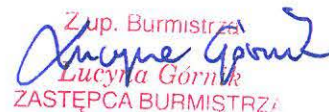 Z up. Burmistrza
Lucyna Górnik
Lucyna Górnik
ZASTĘPCA BURMISTRZA